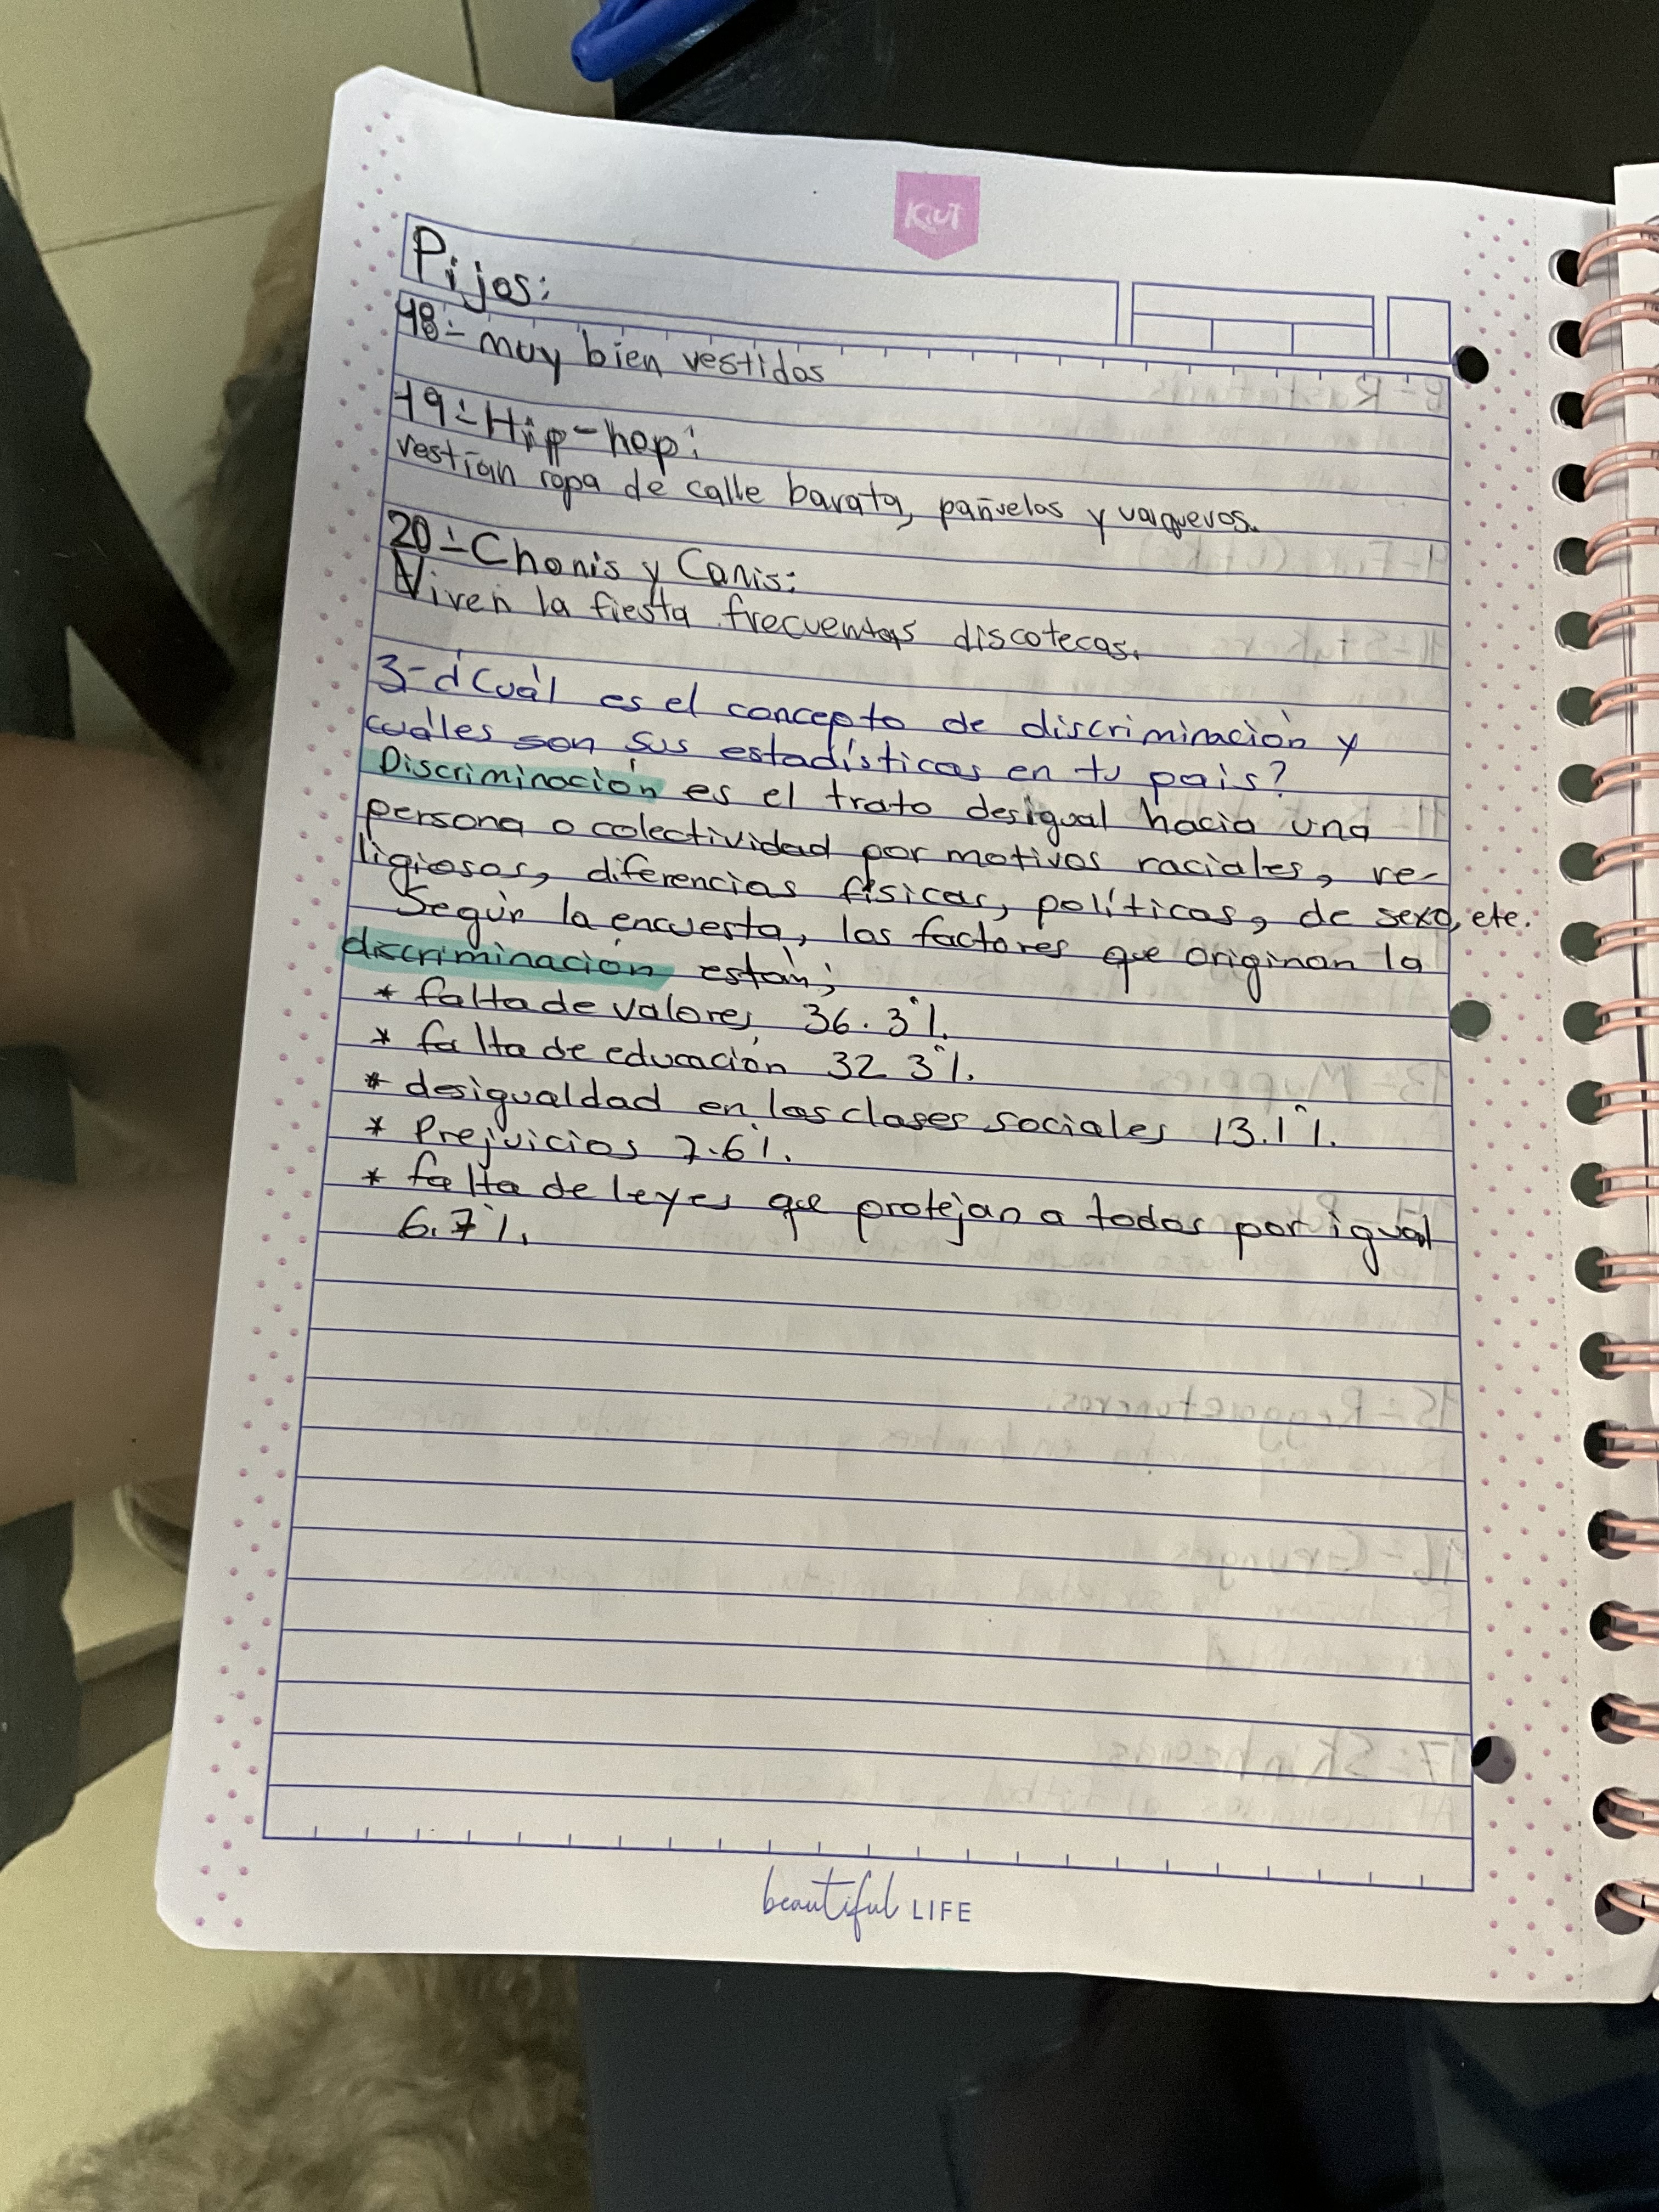 Kiut
Pijos:
18- muy bien vestidos
19- Hip-hop:
vestían ropa de calle barata, pañuelos y vaqueros.
20- Chonis y Canis:
Viven la fiesta frecuentas discotecas.
3- ¿Cuál es el concepto de discriminación y
cuáles son sus estadísticas en tu país?
Discriminación es el trato desigual hacia una
persona o colectividad por motivos raciales, re-
ligiosos, diferencias físicas, políticas, de sexo, etc.
Según la encuesta, los factores que originan la
discriminación están;
* falta de valores 36.3%.
* falta de educación 32.3%.
* desigualdad en las clases sociales 13.1%.
* Prejuicios 7.6%.
* falta de leyes que protejan a todos por igual
6.7%.
beautiful LIFE